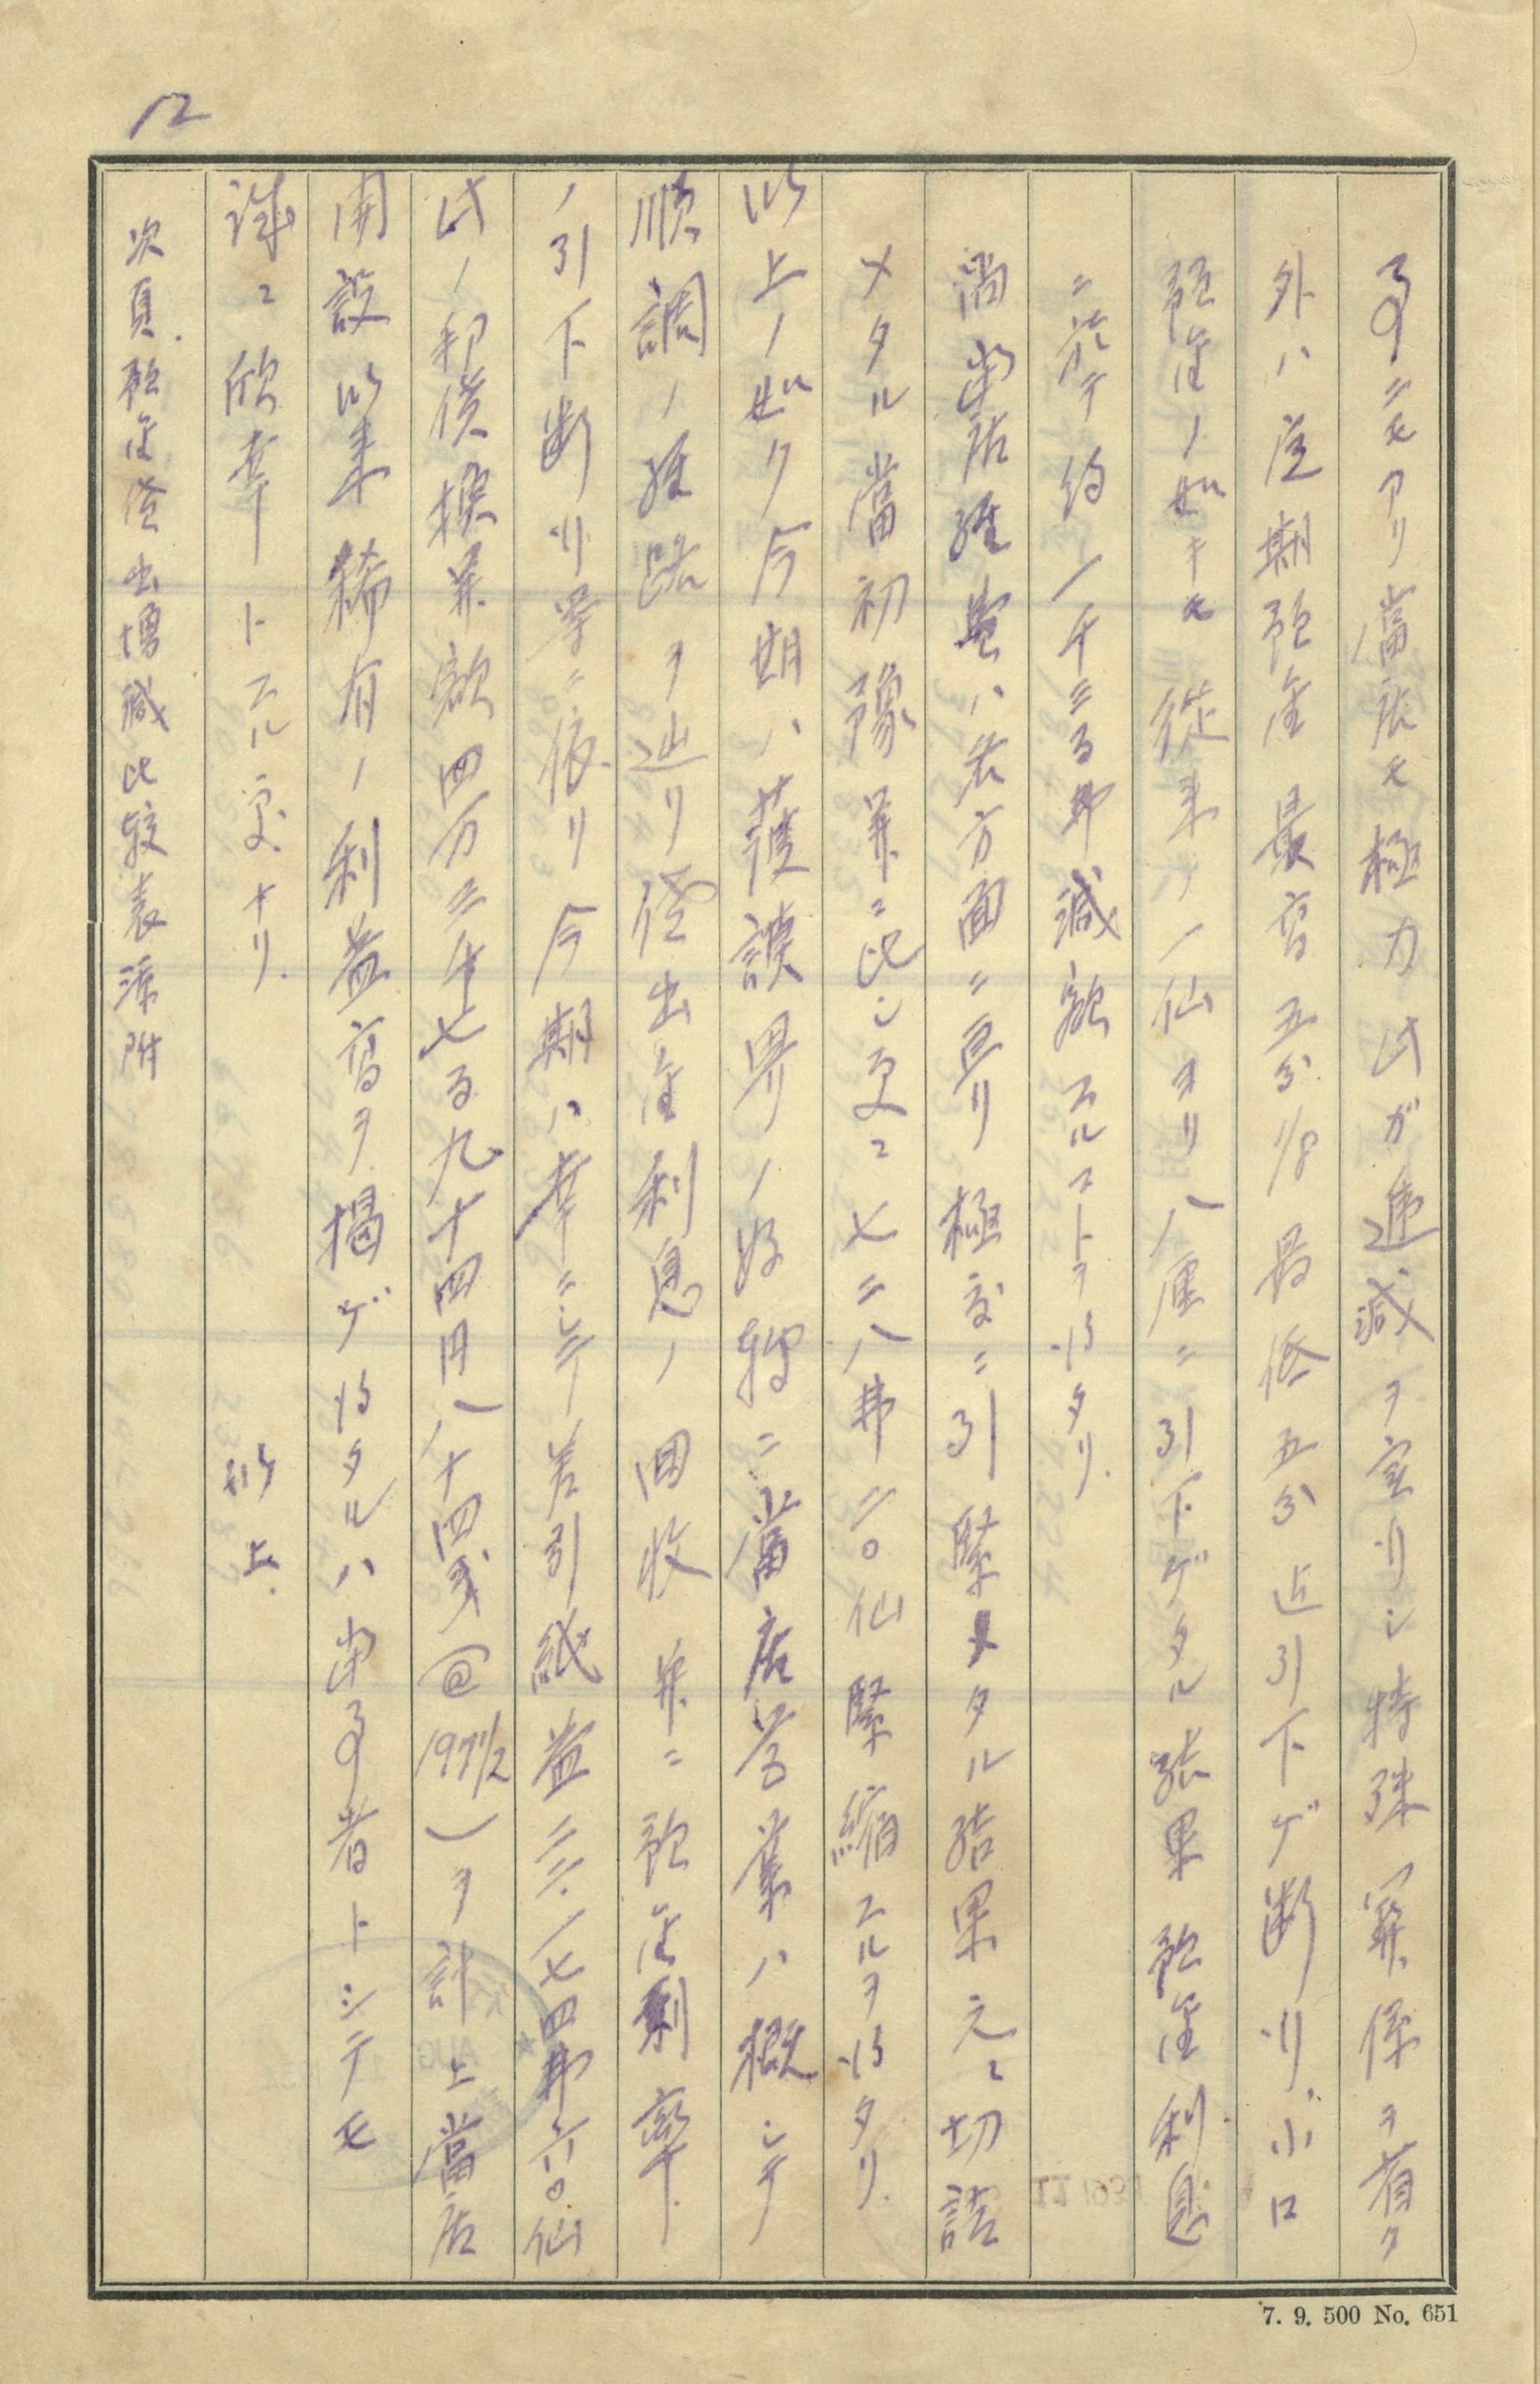 12
事ニモアリ當店モ極力此ガ逓減ヲ宣リシ特殊関係ヲ有ク
外ハ定期預金最高五分1/8最低五分迄引下ゲ断リ小口
預金ノ如キモ従来ノ一仙ヨリ八厘ニ引下ゲタル結果預金利息
ニ於テ約一千三百弗減額スルコトヲ得タリ
尚當店経費ハ各方面ニ亘リ極度ニ引緊メタル結果元々切詰
メタル當初豫算ニ比シ更ニ七二八弗二〇仙緊縮スルヲ得タリ.
以上ノ如ク今期ハ護謨界ノ好轉ニ當店営業ハ概シテ
順調ノ経路ヲ辿リ貸出金利息ノ回收并ニ預金剰率
ノ引下断リ等ニ依リ今期ハ幸ニシテ差引純益三三.一七四弗六〇仙
此ノ邦債換算額四万三千七百九十四円八十四戔(@197 1/2)ヲ計上當店
開設以来稀有ノ利益高ヲ揚ゲ得タルハ當事者トシテモ
誠ニ欣幸トスル處ナリ. 以上.
次頁.預金貸出増減比較表添附
7. 9. 500 No. 651